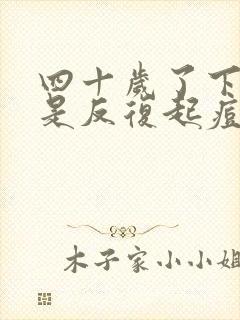 四十歲了下
是反復起痘
木子家小小姐